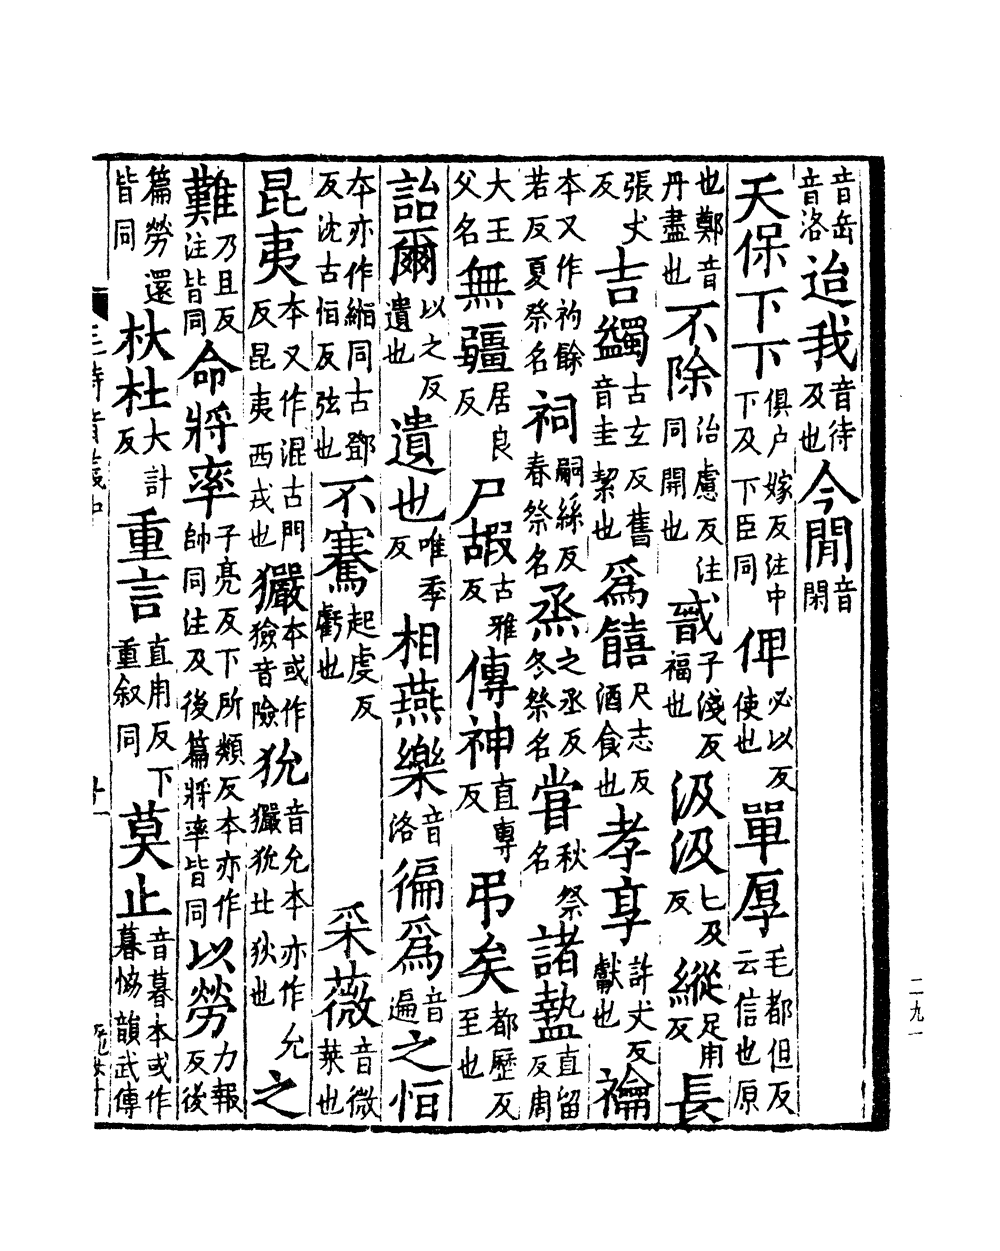 音岳音洛迨我音待及也今閒音閑
天保下下俱户嫁反注中下及下臣同俾必以反使也單厚毛都但反云信也原
也鄭音丹盡也不除治慮反注同開也戩子淺反福也汲汲匕及反縱足用反長
張丈反吉蠲古玄反舊音圭絜也爲饎尺志反酒食也孝享許丈反獻也禴
本又作礿餘若反夏祭名祠嗣絲反春祭名烝之丞反冬祭名甞秋祭名諸盩直留反周
大王父名無疆居良反尸嘏古雅反傳神直專反弔矣都歷反至也
詒爾以之反遺也遺也唯季反相燕樂音洛徧爲音遍之恒
本亦作縆同古鄧反沈古恒反弦也不騫起虔反虧也采薇音微菜也
昆夷本又作混古門反昆夷西戎也玁本或作獫音險狁音允本亦作允玁狁北狄也之
難乃旦反注皆同命將率子亮反下所類反本亦作帥同注及後篇將率皆同以勞力報反後
篇勞還皆同杕杜大計反重言直用反下重叙同莫止音暮本或作暮協韻武傳
二九一